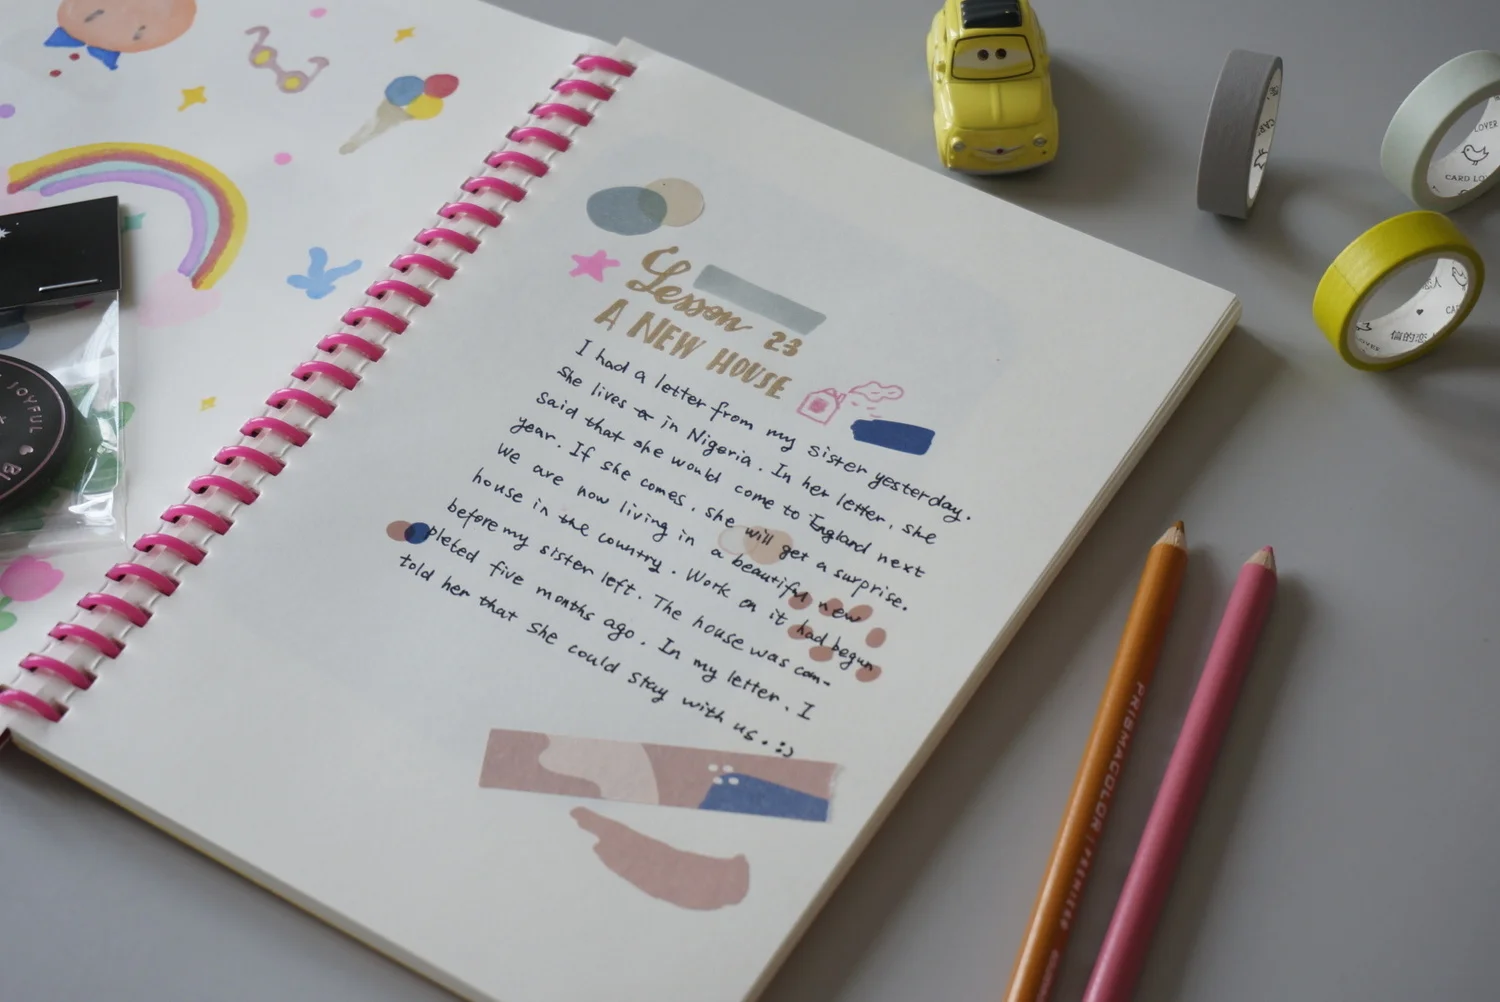 Lesson 23
A NEW HOUSE
I had a letter from my sister yesterday.
She lives in Nigeria. In her letter, she
said that she would come to England next
year. If she comes, she will get a surprise.
We are now living in a beautiful new
house in the country. Work on it had begun
before my sister left. The house was com-
pleted five months ago. In my letter, I
told her that she could stay with us. :)
JOYFUL
BL
CARD LOVER
CARD LO
LOVER
CAR
信的恋
恋人
LOVER
PRISMACOLOR | PREMIER